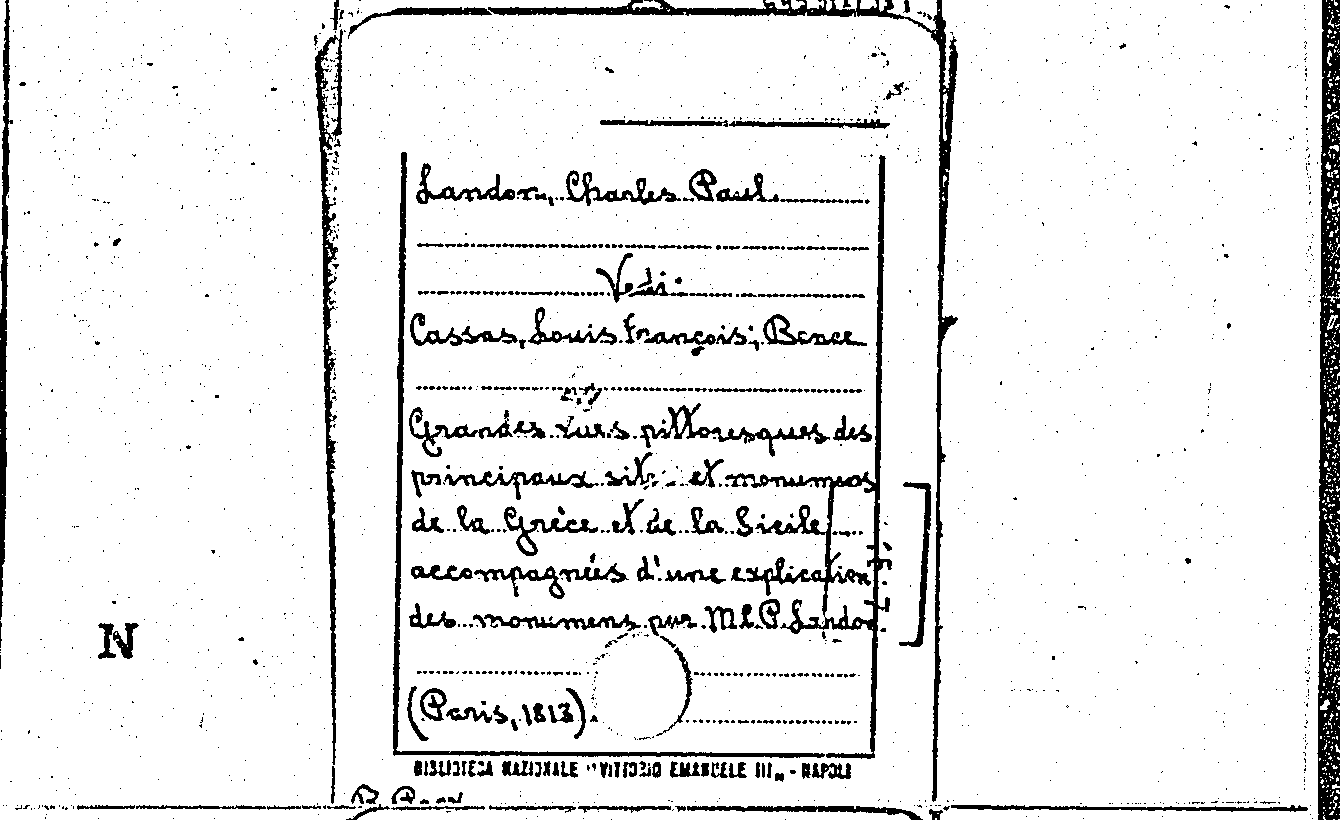 Landon, Charles Paul.
Vedi:
Cassas, Louis François; Bence
Grandes vues pittoresques des
principaux et monumens
de la Grèce et de la Sicile
accompagnées d'une explication
des monumens par M.C.P. Landon.
N
(Paris, 1813).
BIBLIOTECA NAZIONALE "VITTORIO EMANUELE III„ - NAPOLI